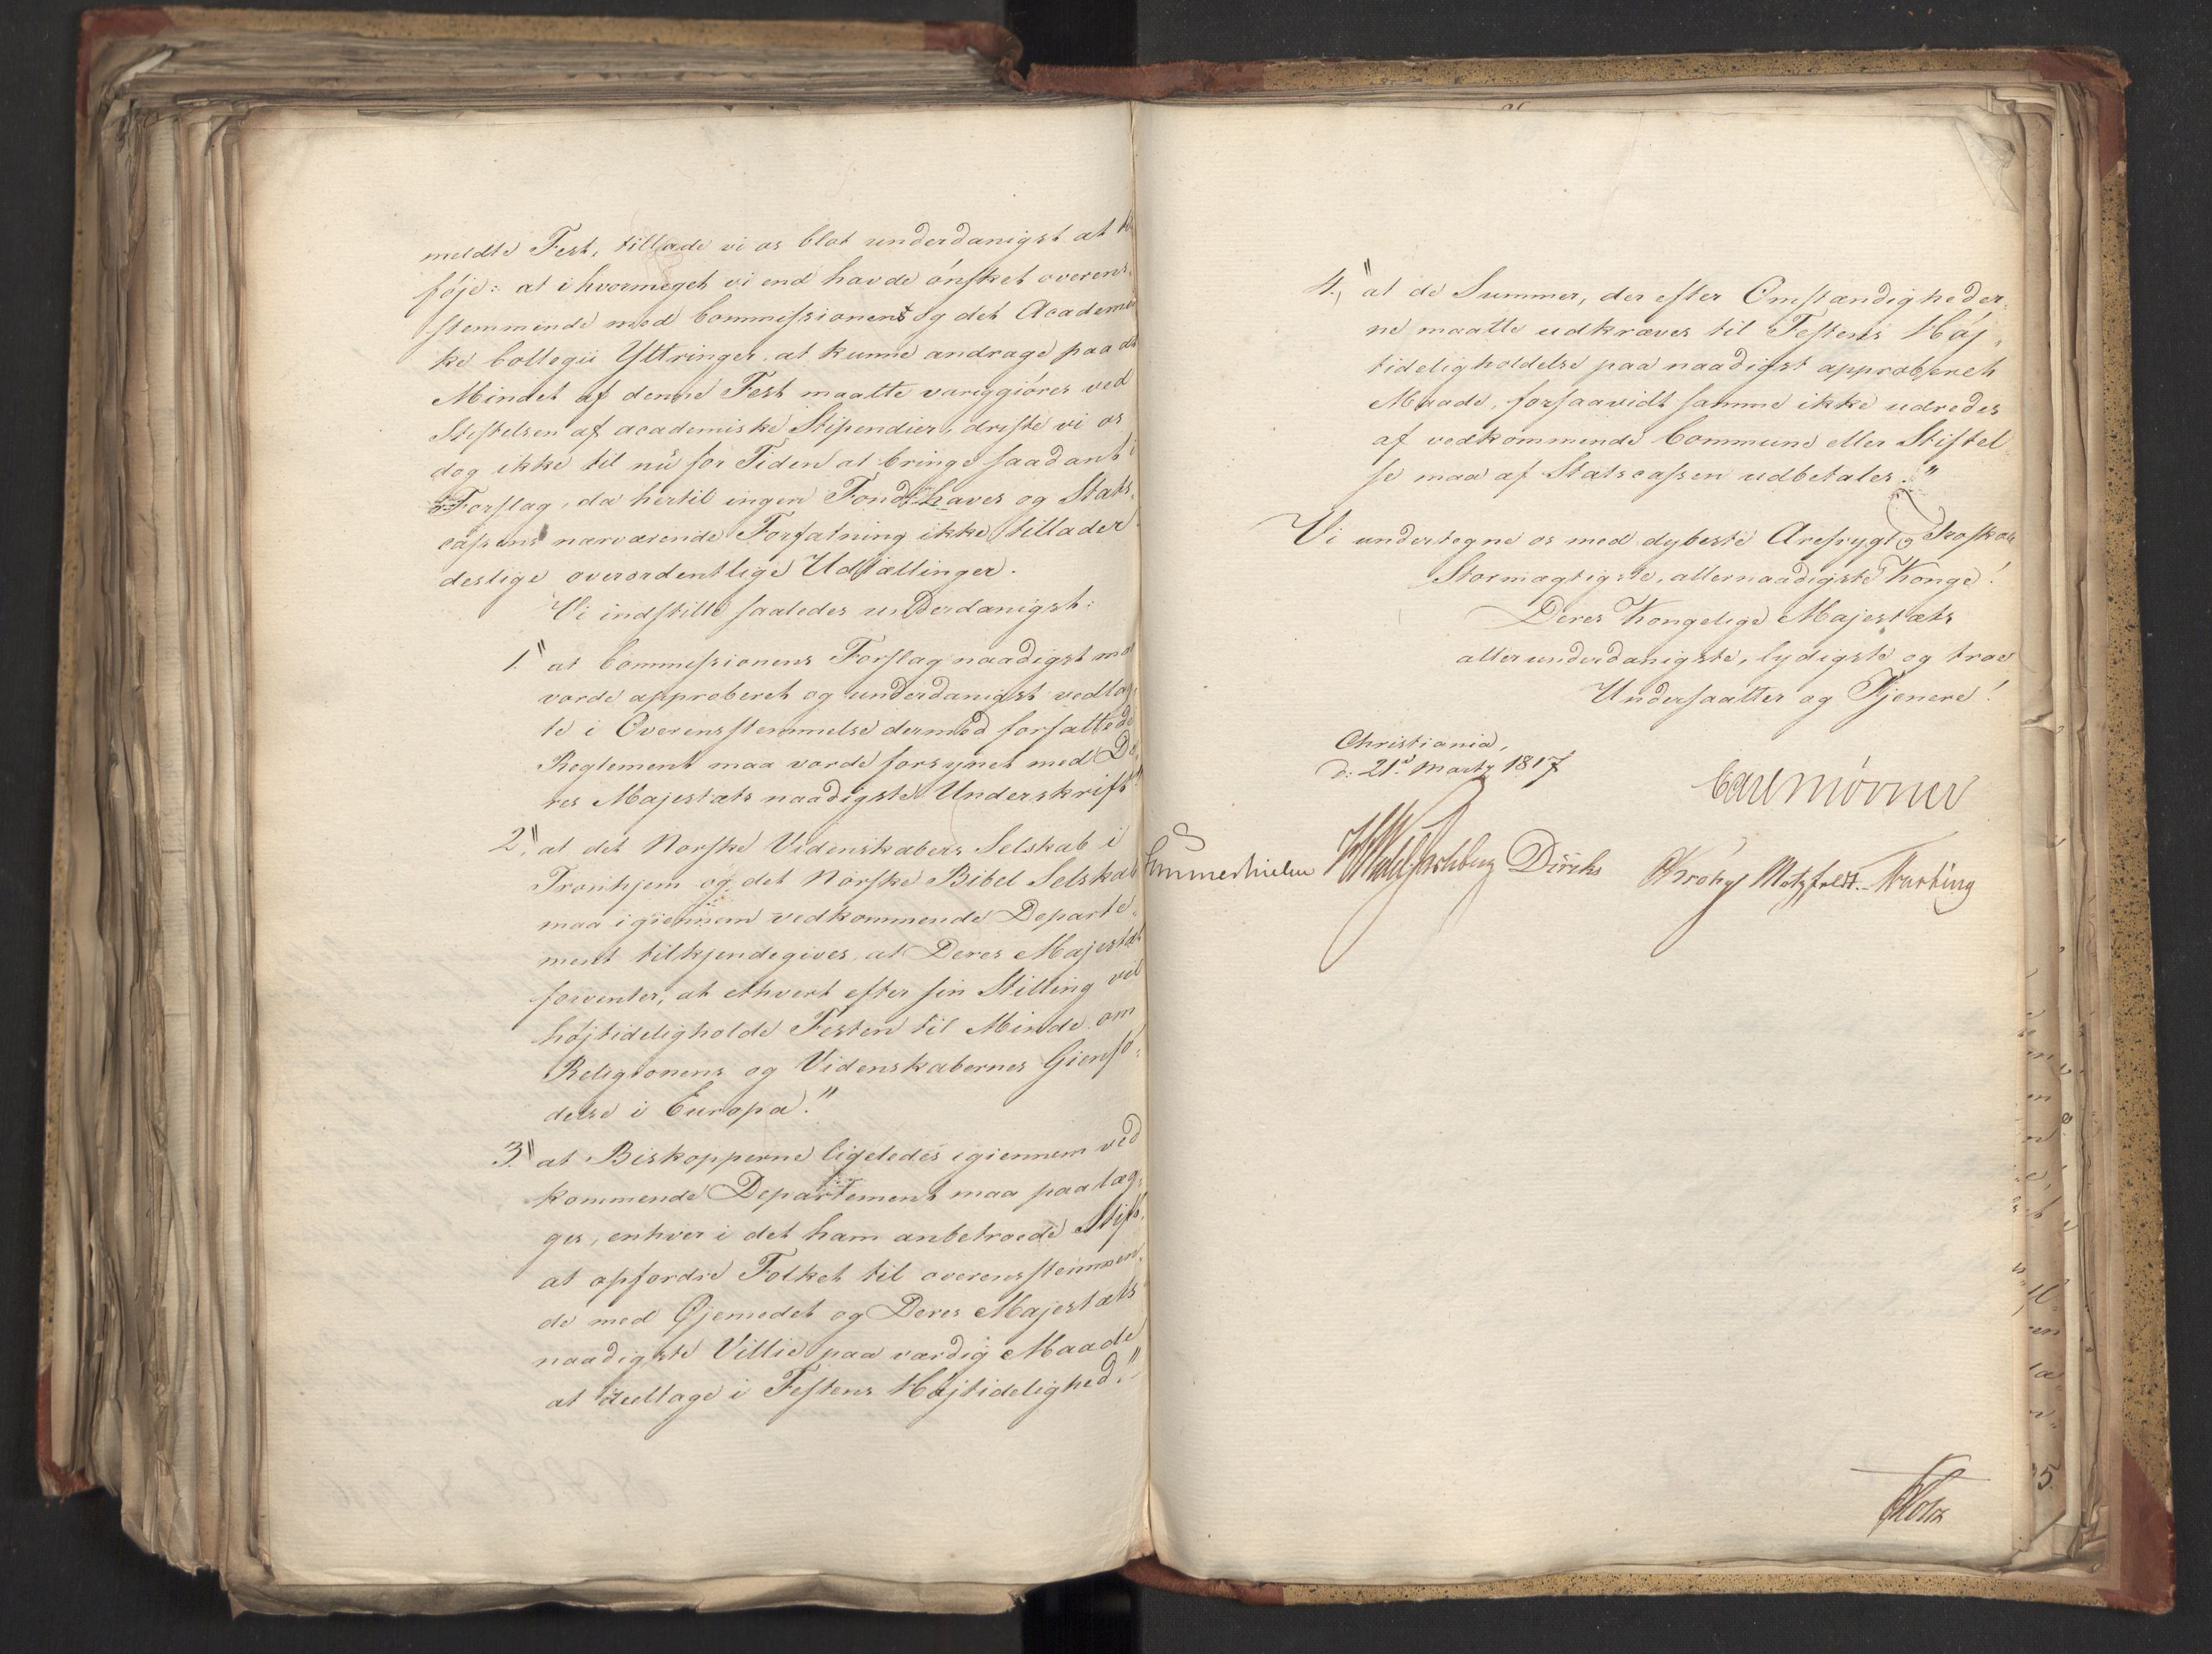 meldte Fest, tillade vi os blot underdanigst at
föje: at i hvormeget vi end havde önsket overens-
stemmende med Commissionens og det Academis
ke Collegii Yttringer, at kunne andrage paa at
Mindet af denne Fest maatte variggiöres ved
Stiftelsen af academiske Stipendier, driste vi os
dog ikke til nu for Tiden at bringe saadant i
Forslag, da hertil ingen Fond haves og Stats-
cassens nærværende Forfatning ikke tillader
deslige overordentlige Udtællinger.
Vi indstille saaledes underdanigst:
1." at Commissionens Forslag naadigst maa
vorde approberet og underdanigst vedlag-
te i Overensstemmelse dermed forfattede
Reglement maa vorde forsynet med De-
res Majestæts naadigste Underskrift"
2", at det Norske Videnskabers Selskab i
Tronhjem og det Norske Bibel Selskab
maa igiennem vedkommende Departe-
ment tilkjendegives, at Deres Majestæt
forventer, at ethvert efter sin Stilling vil
höjtideligholde Festen til Minde om
Religionens og Videnskabernes Gienfö-
delse i Europa."
3." at Biskopperne ligeledes igiennem ved
kommende Departement maa paalæg-
ges, enhver i det ham anbetroede Stift,
at opfordre Folket til overensstemmen-
de med Öjemedet og Deres Majestæts
naadigste Villie paa værdig Maade
at deeltage i Festens Höjtidelighed."
4", at de Summer, der efter Omstændigheder-
ne maatte udkræves til Festens Höj-
tideligholdelse paa naadigst approberet
Maade, forsaavidt samme ikke udredes
af vedkommende Commune eller Stiftel
se maa af Statscassen udbetales."
Vi undertegne os med dybeste Ærefrygt og Troskab
Stormægtigste, allernaadigste Konge!
Deres Kongelige Majestæts
allerunderdanigste, lydigste og troe
Undersaatter og Tjenere!
Christiania,
d: 21d Martz 1817
Carl Mörner
Sommerhielm Wedel Jarlsberg Diriks Krohg Motzfeldt.
Holst